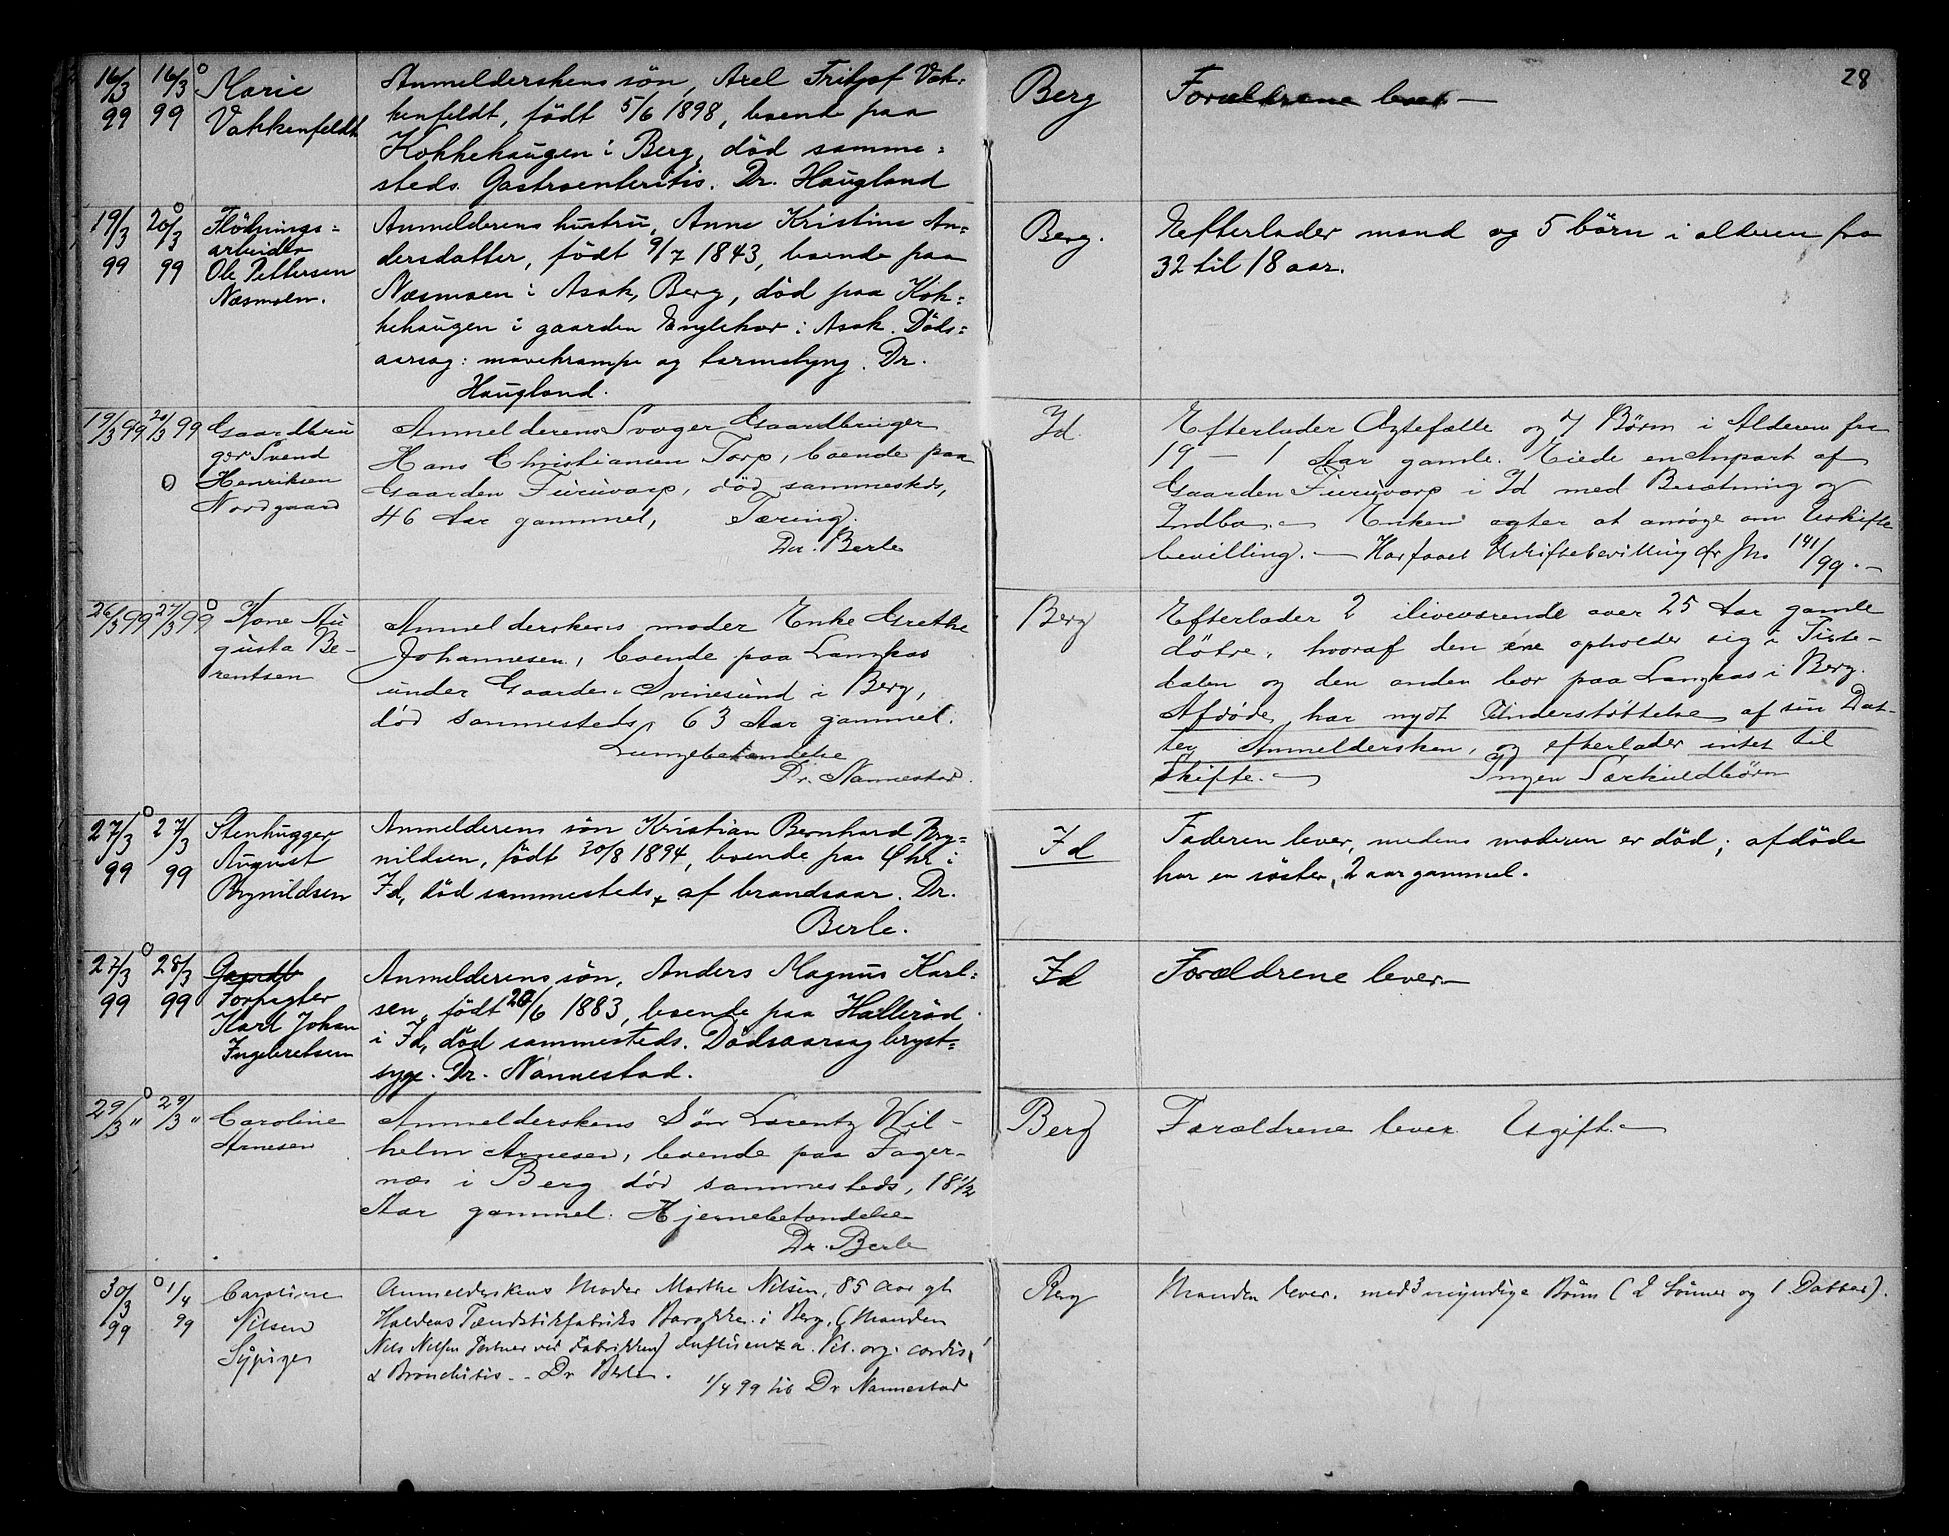 28
16/3 99
16/3 99
Marie
Vakkenfeldt
Anmelderskens søn, Axel Fritjof Vak-
kenfeldt, født 5/6 1898, boende paa
Kokkehaugen i Berg, død samme=
steds. Gastroenteritis. Dr. Haugland
Berg
Forældrene lever —
19/3 99
20/3 99
Flødnings=
arbeider
Ole Pettersen
Næsmoen.
Anmelderens hustru, Anne Kristine An=
dersdatter, født 9/7 1843, boende paa
Næsmoen i Asak, Berg, død paa Kok=
kehaugen i gaarden Englekor i Asak. Døds=
aarsag: mavekrampe og tarmslyng. Dr.
Haugland.
Berg.
Efterlader mand og 5 børn i alderen fra
32 til 18 aar.
19/3 99
20/3 99
Gaardbru
ger Svend
Henriksen
Nordgaard
Anmelderens Svoger Gaardbruger
Hans Christiansen Torp, boende paa
Gaarden Furuvarp, død sammesteds,
46 Aar gammel, Tæring.
Dr. Berle
Id.
Efterlader Ægtefælle og 7 Børn i Alderen fra
19 — 1 Aar gamle. Eiede en Anpart af
Gaarden Furuvarp i Id med Besætning og
Indbo. — Enken agter at ansøge om Uskifte
bevilling. — Har faaet Uskiftebevilling cfr Jn. 141/99. —
26/3 99
27/3 99
Kone Au
gusta Be-
rentsen
Anmelderskens moder Enke Grethe
Johannesen, boende paa Langkas
under Gaarden Svinesund i Berg,
død sammesteds, 63 Aar gammel.
Lungebetændelse
Dr. Nannestad.
Berg
Efterlader 2 ilivewærende over 25 Aar gamle
døtre, hvoraf den ene opholder sig i Tiste-
dalen og den anden bor paa Langkas i Berg.
Afdøde har nydt Understøttelse af sin Dat-
ter Anmeldersken, og efterlader intet til
Skifte. — Ingen Særkuldbørn
27/3 99
27/3 99
Stenhugger
August
Brynildsen
Anmelderens søn Kristian Bernhard Bry=
nildsen, født 30/8 1894, boende paa Øhr i
Id, død sammesteds, af brandsaar. Dr.
Berle.
Id
Faderen lever, medens moderen er død; afdøde
har en søster, 2 aar gammel.
27/3 99
28/3 99
Gaardb
Forpagter
Karl Johan
Ingebretsen
Anmelderens søn, Anders Magnus Karl=
sen, født 20/6 1883, boende paa Hallerød
i Id, død sammesteds. Dødsaarsag bryst=
syge. Dr. Nannestad.
Id
Forældrene lever —
29/3 "
29/3 "
Caroline
Arnesen
Anmelderskens Søn Lorentz Wil-
helm Arnesen, boende paa Fager-
næs i Berg død sammesteds, 18 1/2
Aar gammel. Hjernebetændelse
Dr. Berle
Berg
Forældrene lever. Ugift. —
30/3 99
1/4 99
Caroline
Nilsen
Sypige
Anmelderskens Moder Marthe Nilsen, 85 Aar gl.
Haldens Tændstikfabriks Barakke i Berg, (Manden
Nils Nilsen Portner ved Fabrikken) Influenza. Vit. org. cordis,
& Bronchitis. - Dr Berle.
1/4 99 til Dr Nannestad
Berg
Manden lever. med 3 myndige Børn (2 Sønner og 1 Datter).